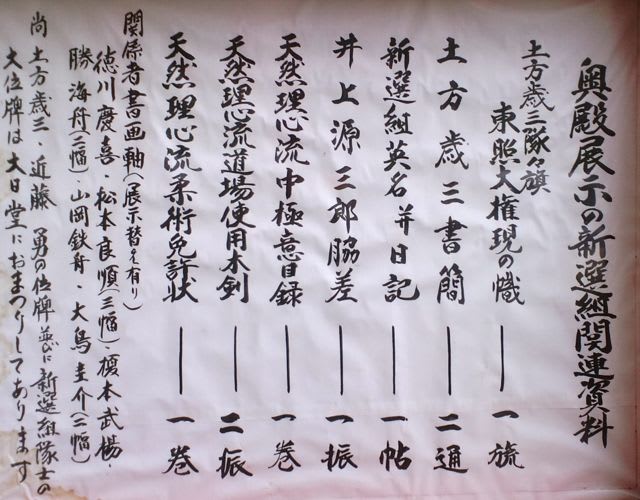 奥殿展示の新選組関連資料
土方歳三隊々旗
東照大権現の幟 ── 一旒
土方歳三書簡 ── 二通
新選組英名并日記 ── 一帖
井上源三郎脇差 ── 一振
天然理心流中極意目録 ── 一巻
天然理心流道場使用木剣 ── 二振
天然理心流柔術免許状 ── 一巻
関係者書画軸(展示替え有り)
徳川慶喜・松本良順(三幅)・榎本武揚・
勝海舟(二幅)・山岡鉄舟・大鳥圭介(二幅)
尚土方歳三、近藤勇の位牌並びに新選組隊士の
大位牌は大日堂におまつりしてあります